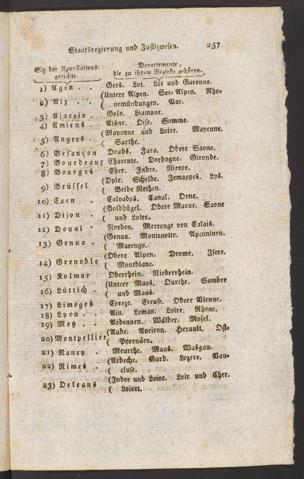 Staatsregierung und Justizwesen. 257
Sitz der Appellations- Departemente,
gerichte. die zu ihrem Bezirke gehören.
1) Agen . . Gers. Lot. Lot und Garonne.
(Untere Alpen. See-Alpen. Rho-
2) Aix . . (nemündungen. Var.
3) Ajaccio . Golo. Liamone.
4) Amiens . Aisne. Oise. Somme.
(Mayenne und Loire. Mayenne.
5) Angers . ( Sarthe.
6) Besançon Doubs. Jura. Obere Saone.
7) Bourdeaux Charente. Dordogne. Gironde.
8) Bourges Cher. Indre. Nievre.
(Dyle. Schelde. Jemappes. Lys.
9) Brüssel ( Beide Nethen.
10) Caen . Calvados. Canal. Orne.
(Goldhügel. Obere Marne. Saone
11) Dijon . ( und Loire.
12) Douai . Norden. Meerenge von Calais.
(Genua. Montenotte. Apenninen.
13) Genua . ( Marengo.
(Obere Alpen. Drome. Isere.
14) Grenoble ( Montblanc.
15) Kolmar Oberrhein. Niederrhein.
(Untere Maas. Ourthe. Sambre
16) Lüttich . ( und Maas.
17) Limoges Coreze. Creuse. Obere Vienne.
18) Lyon . . Ain. Leman. Loire. Rhone.
19) Metz . . Ardennen. Wälder. Mosel.
(Aude. Aveiron. Herault. Ost-
20) Montpellier( Pyrenäen.
21) Nancy . Meurthe. Maas. Wasgau.
(Ardeche. Gard. Lozere. Vau-
22) Nimes . ( cluse.
(Indre und Loire. Loir und Cher.
23) Orleans ( Loiret.